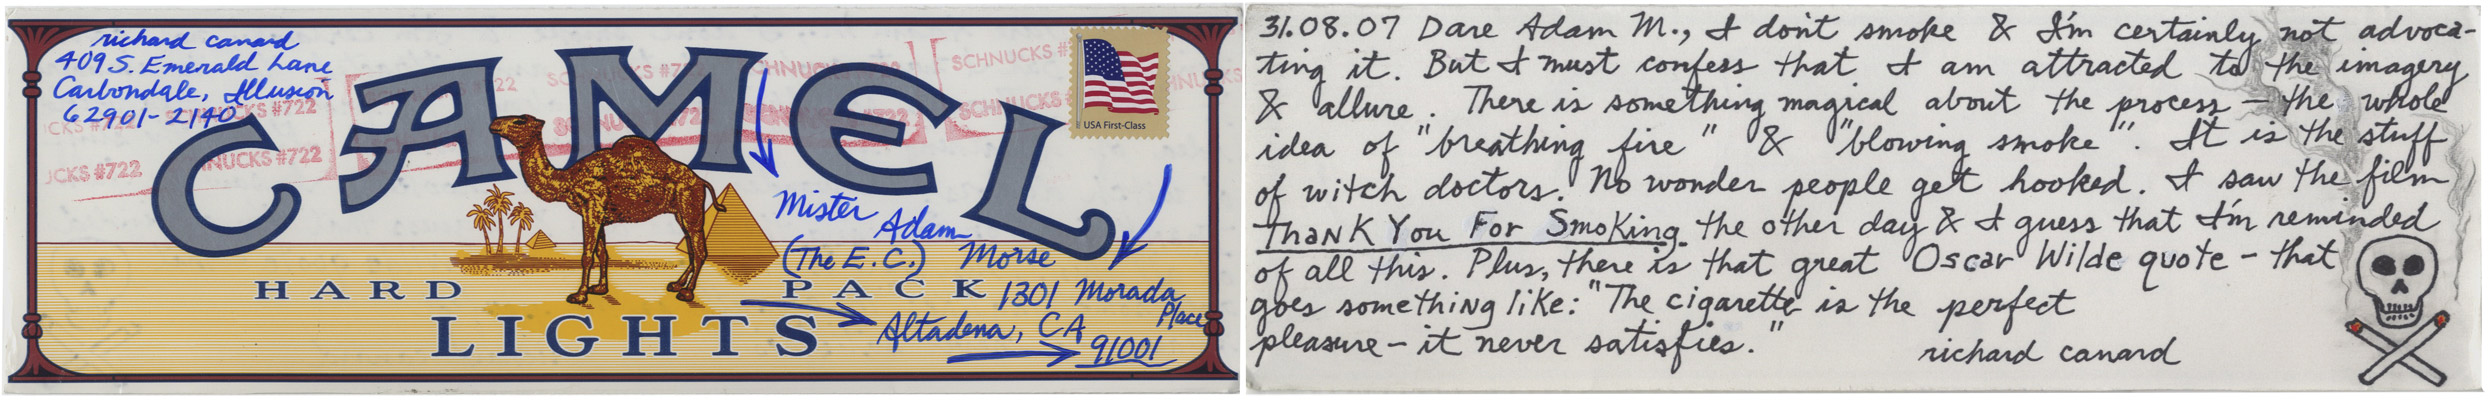 richard canard
409 S. Emerald Lane
Carbondale, Illusion
62901-2140
SCHNUCKS #722
SCHNUCKS #722
SCHNUCKS #722
CAMEL
USA First-Class
Mister
Adam
(The E.C.) Morse
HARD PACK
1301 Morada
Place
LIGHTS
Altadena, CA
91001
31.08.07 Dare Adam M., I don't smoke & I'm certainly not advoca-
ting it. But I must confess that I am attracted to the imagery
& allure. There is something magical about the process — the whole
idea of "breathing fire" & "blowing smoke". It is the stuff
of witch doctors. No wonder people get hooked. I saw the film
Thank You For Smoking the other day & I guess that I'm reminded
of all this. Plus, there is that great Oscar Wilde quote — that
goes something like: "The cigarette is the perfect
pleasure — it never satisfies."
richard canard